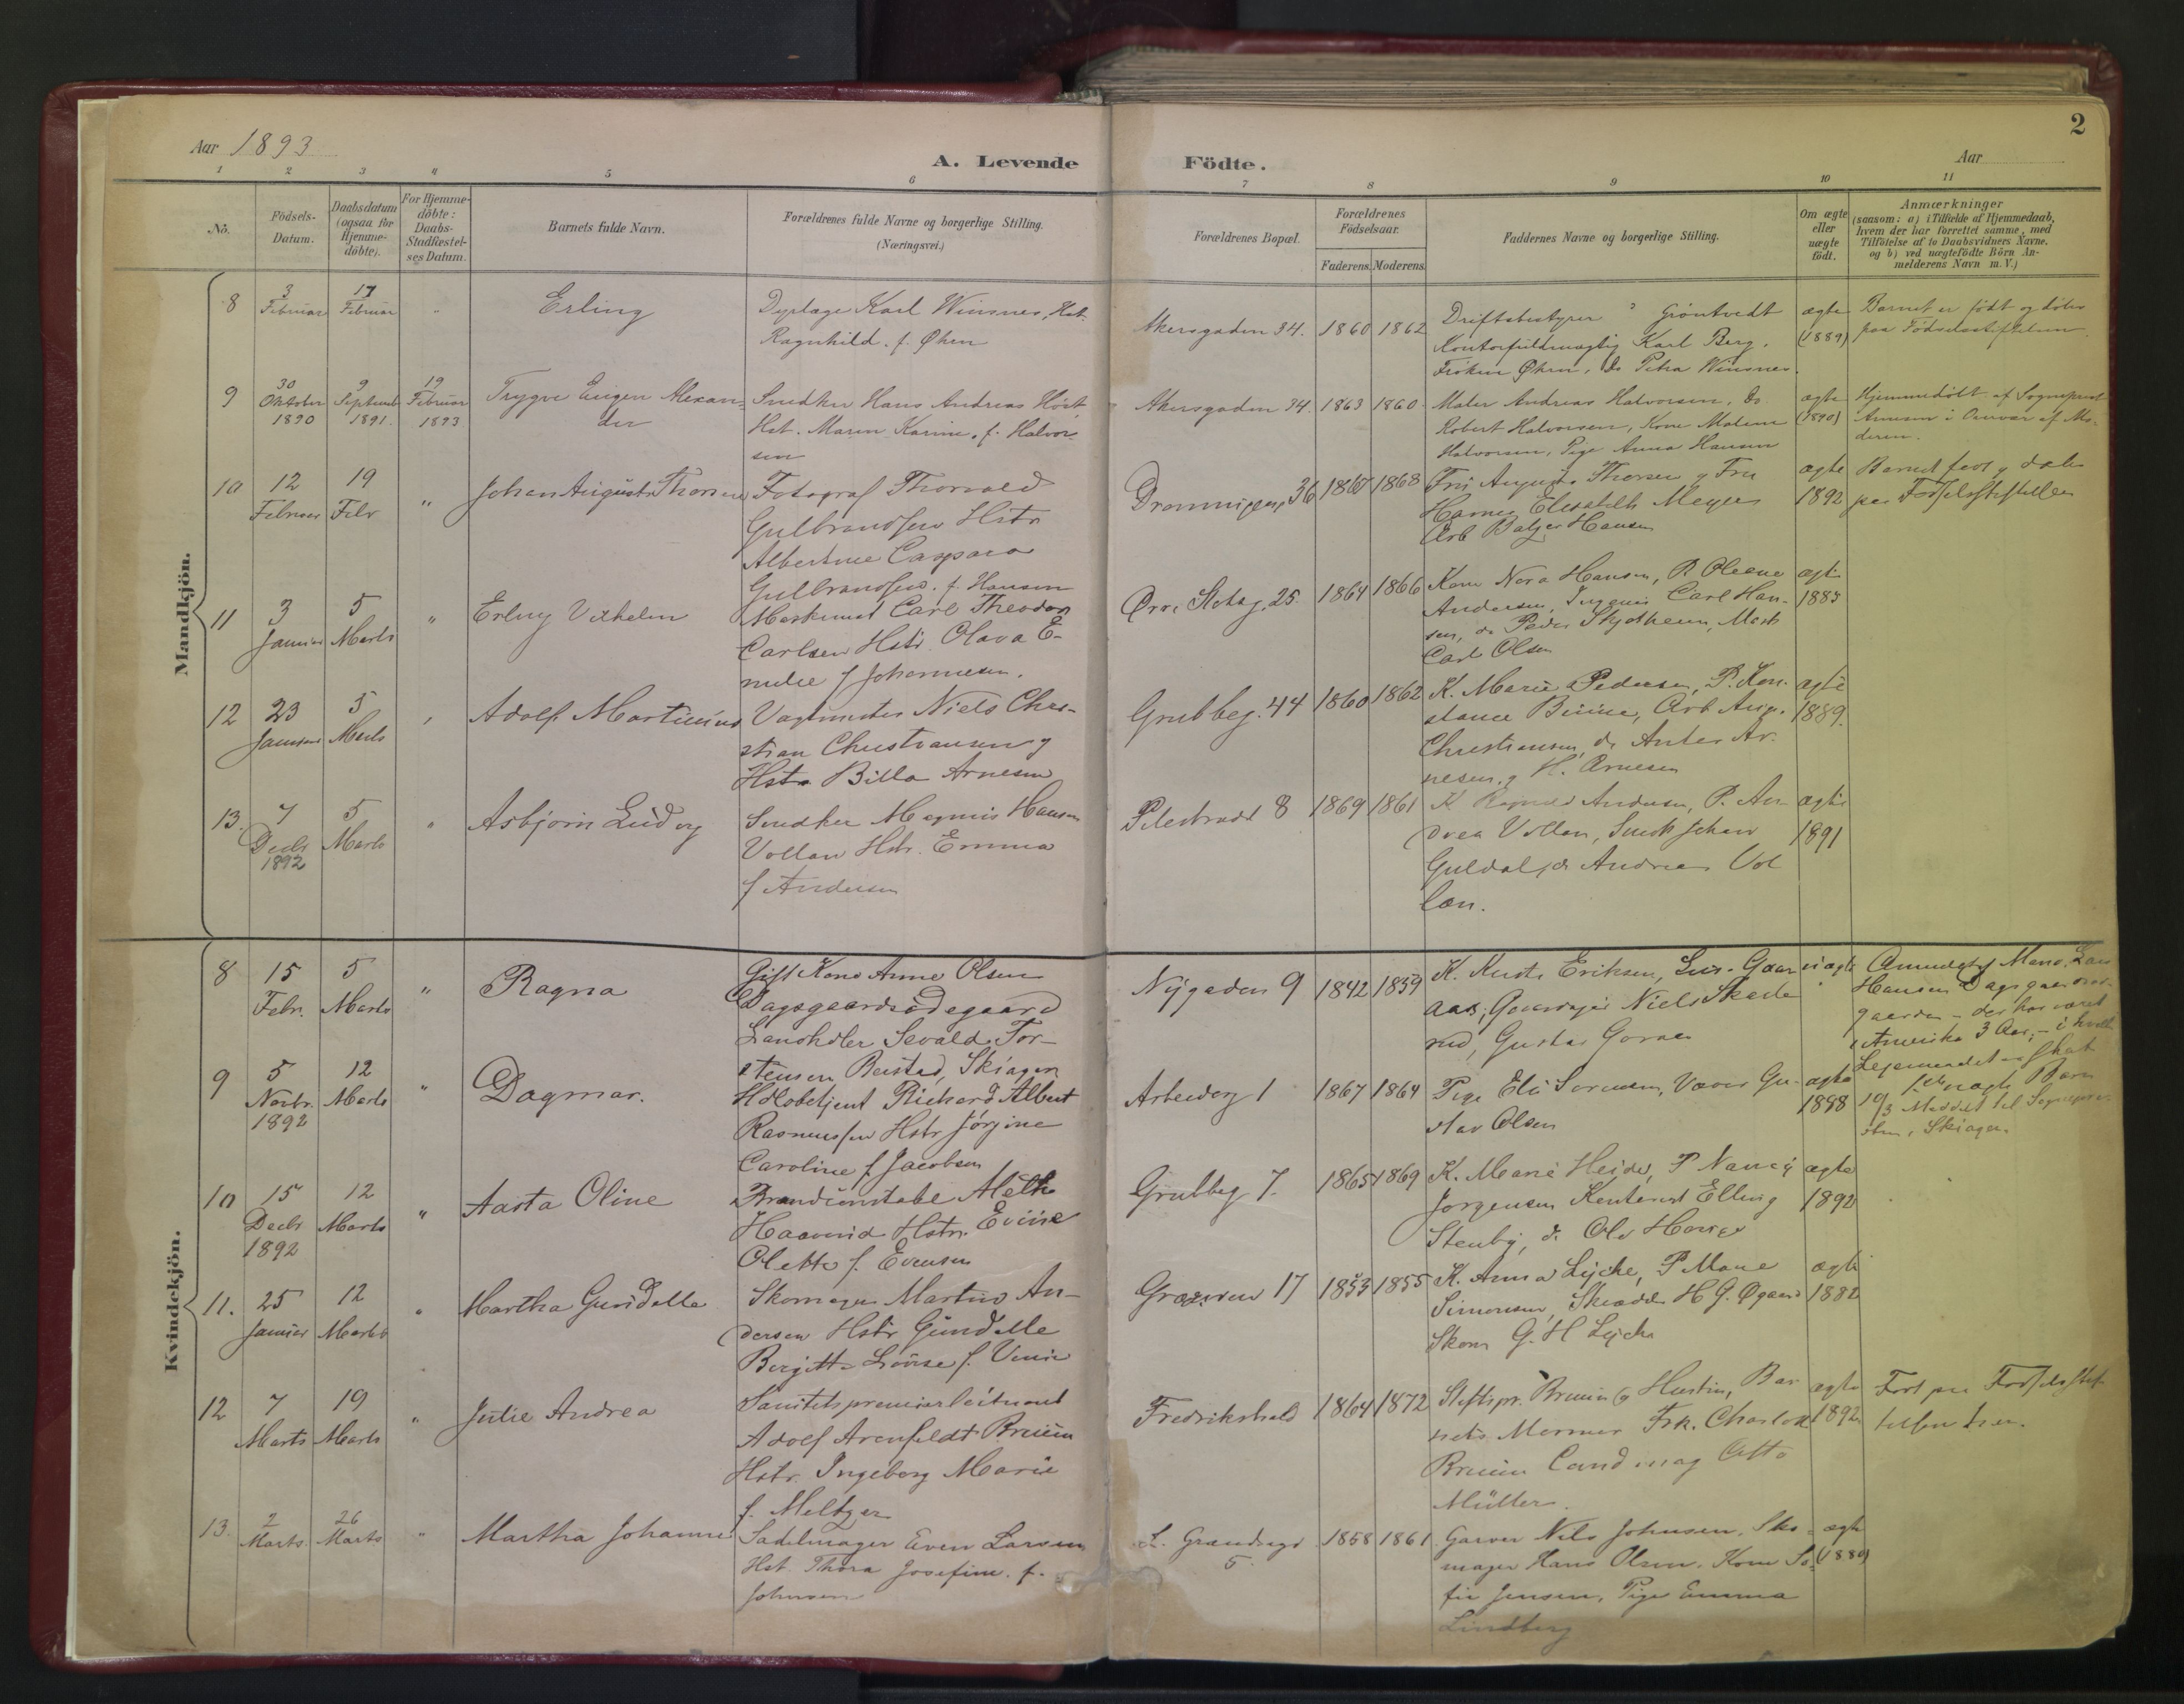 2
Aar 1893
A. Levende Födte.
Aar
1 2 3 4 5 6 7 8 9 10 11
No.
Födsels-
Datum.
Daabsdatum
(ogsaa for
Hjemme-
döbte).
For Hjemme-
döbte:
Daabs-
Stadfæstel-
ses Datum.
Barnets fulde Navn.
Forældrenes fulde Navne og borgerlige Stilling.
(Næringsvei.)
Forældrenes Bopæl.
Forældrenes
Födselsaar.
Faderens. Moderens.
Faddernes Navne og borgerlige Stilling.
Om ægte
eller
uægte
födt.
Anmærkninger
(saasom: a) i Tilfælde af Hjemmedaab,
hvem der har forrettet samme, med
Tilföielse af to Daabsvidners Navne.
og b) ved uægtefödte Börn An-
melderens Navn m. V.)
Mandkjön.
8
3
Februar
17
Februar
"
Erling
Karl Winsnes, Hst.
Ragnhild. f. Øhen
Akersgaden 34.
1860 1862
Driftsbestyrer " Gröntvedt
Kontorfuldmægtig Karl Berg.
Fröken Øhrn, do Petra Winsnes.
ægte
(1889)
Barnet er födt og döbt
paa Födselsstiftelsen
9
30
Oktober
1890
9
Septemb
1891
19
Februar
1893
Trygve Eugen Alexan-
der
Snedker Hans Andreas Höst
Hst. Maren Karine, f. Halvor-
sen
Akersgaden 34.
1863 1860
Maler Andreas Halvorsen, do
Robert Halvorsen, Kone Malena
Halvorsen, Pige Anna Hansen
ægte
(1890)
Hjemmedöbt af Sogneprest
Arnesen i af Mo-
deren.
10
12
Februar
19
Febr
"
Johan August Thorsen
Fotograf Thorvald
Gulbrandsen Hstr
Albertine Caspara
Gulbrandsen. f. Hansen
Dronningens 36
1867 1868
Fru Augusta Thorsen og Fru
Elisabeth Meyer
Arb Hansen
ægte
1892
Barnet og dobt
paa Fødselsstiftelsen
11
3
Januar
5
Marts
"
Erling Vilhelm
Maskinist Carl Theodor
Carlsen Hstr. Olava E-
milie f Johannesen.
Øvre Slotsg. 25.
1864 1866
Kone Nora Hansen, P. Oleane
Andersen, Carl Han-
sen, do Peder Skjotheim, Mask
Carl Olsen
ægte
1883
12
23
Januar
5
Marts
"
Adolf Martinius
Vagtmester Niels Chri-
stian Christiansen og
Hstr Billa Arnesen
Grubbeg. 44
1860 1862
K. Marie Pedersen, P. Kon-
stance Arb Aug.
Christiansen, do Anton Ar-
nesen, og H. Arnesen
ægte
1889.
13.
7
Decbr
1892
5
Marts
"
Asbjörn Ludvig
Snedker Magnus Hansen
Vollan Hstr. Emma
f Andersen
Pilestrædt 8
1869 1861
K Andersen, P. An-
drea Vollan, Snedk Johan
Guldal, do Andreas Vol
lan.
ægte
1891
Kvindekjön.
8
15
Febr.
5
Marts
"
Ragna
Gift Kone Anne Olsen
Dagsgaardsødegaard
Landhdler Sevald Tor-
stensen Skiager
Nygaden 9
1842 1859
K. Eriksen, Gaar
aas, Niels
rud, Gustav
uægte
Mand. Lars
Hansen
gaarden - der har været
i Amerika 3 Aar, - i hvilk
Barn
19/3 Meddelt til Sognepre-
sten i Skiager.
9
5
Novbr.
1892
12
Marts
"
Dagmar.
Richard Albert
Rasmussen Hstr Jørgine
Caroline f Jacobsen
Arbeiderg 1
1867 1864
Pige Eli Sørensen, Væver Gu-
stav Olsen
ægte
1888
10
15
Decbr
1892
12
Marts
"
Aasta Oline
Brandconstabel
Hstr. Evine
Olette f. Evensen
Grubbeg 7.
1865 1869
K. Marie Heide, P Nancy
Jorgensen Kontorist Elling
Stenby, do Ole
ægte
1892
11.
25
Januar
12
Marts
"
Martha Gundelle
Skomager Martin An-
dersen Hstr Gundelle
Birgitte Lovise f.
Grændsen 17
1853 1855
K. Anna Lycke, P Marie
Simonsen, H. G. Øgaard
Skom G. H Lycke
ægte
1882
12
7
Marts
19
Marts
"
Julie Andrea
Sanitetspremierleitnant
Adolf Arenfeldt Bruun
Hstr. Ingeborg Marie
f. Meltzer
Fredrikshald
1864 1872
Stiftspr. Bruun og Hustru, Bar
nets Mormor Frk. Charlotte
Bruun Cand mag Otto
Müller.
ægte
1892
Født paa Fødselsstif
telsen her.
13.
2
Marts
26
Marts
"
Martha Johanne
Sadelmager Even Larsen
Hst. Thora Josefine. f.
Johnsen
L. Grændsegd
5.
1858 1861
Garver Nils Johnsen, Sko-
mager Hans Olsen. Kone So-
fie Jensen, Pige Emma
Lindberg
ægte
(1880)